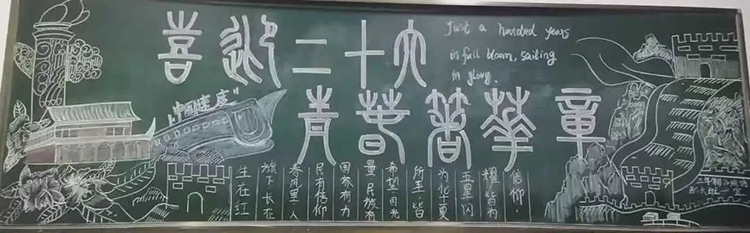 喜迎二十大
Just a hundred years
in full bloom, sailing
in glory.
"中国速度"
青春著華章
生在红
旗下,长在
春风里,人
民有信仰
国家有力
量,民族有
希望,目光
所至,皆
为华夏
五星闪
耀,皆为
信仰.